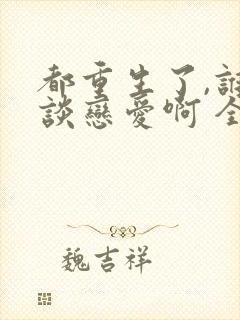 都重生了,誰
談戀愛啊 全
魏吉祥